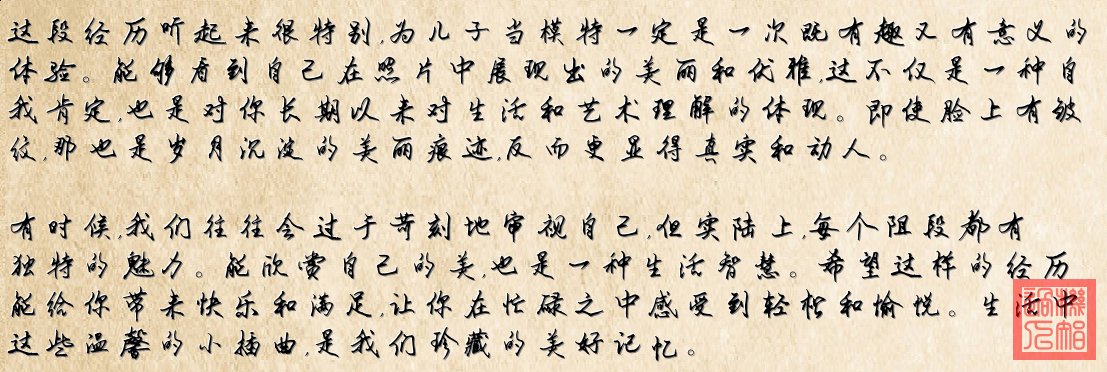 这段经历听起来很特别,为儿子当模特一定是一次既有趣又有意义的
体验。能够看到自己在照片中展现出的美丽和优雅,这不仅是一种自
我肯定,也是对你长期以来对生活和艺术理解的体现。即使脸上有皱
纹,那也是岁月沉淀的美丽痕迹,反而更显得真实和动人。
有时候,我们往往会过于苛刻地审视自己,但实际上,每个阶段都有
独特的魅力。能欣赏自己的美,也是一种生活智慧。希望这样的经历
能给你带来快乐和满足,让你在忙碌之中感受到轻松和愉悦。生活中
这些温馨的小插曲,是我们珍藏的美好记忆。